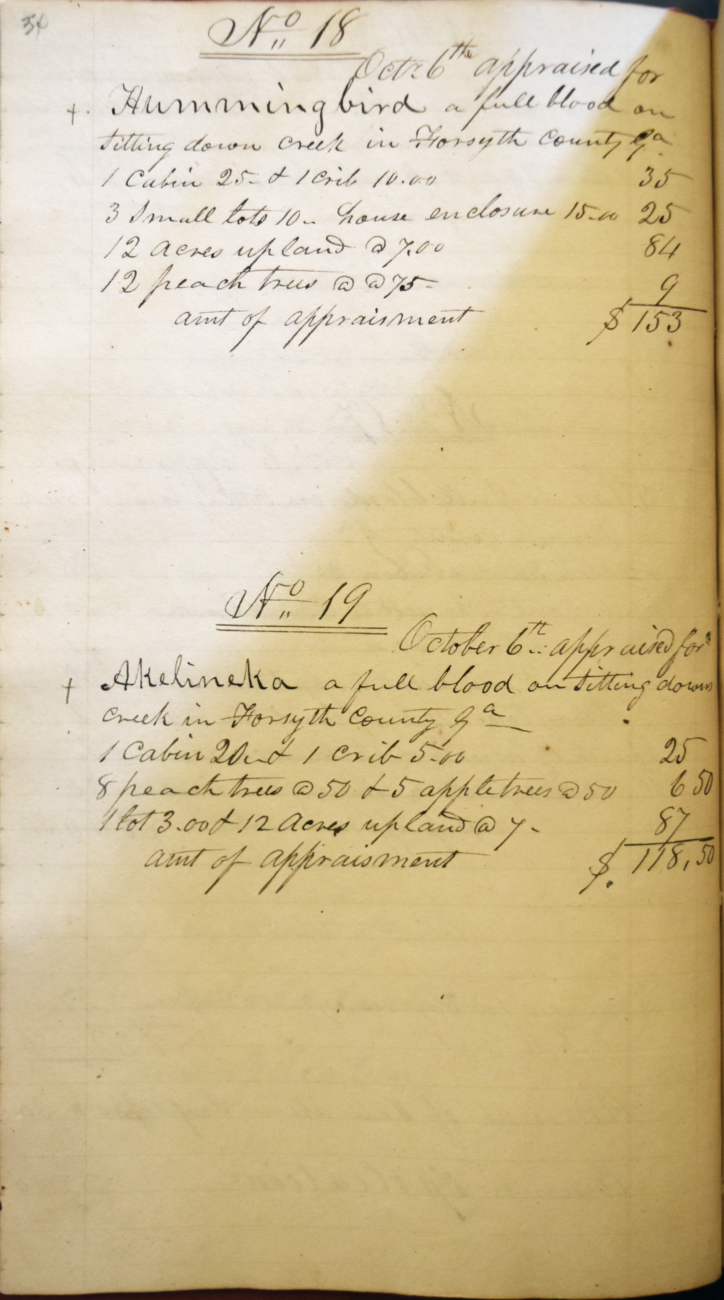 34
No 18
Octr 6th appraised for
+ Hummingbird a full blood on
Sitting down creek in Forsyth County Ga
1 Cabin 25- & 1 crib 10.00 35
3 Small lots 10- house enclosure 15.00 25
12 acres upland @ 7.00 84
12 peach trees @ @ 75- 9
amt of appraisment $ 153
No 19
October 6th appraised for
+ Akelineka a full blood on Sitting down
creek in Forsyth County Ga
1 Cabin 20- & 1 crib 5.00 25
8 peach trees @ 50 & 5 apple trees @ 50 6 50
1 lot 3.00 & 12 Acres upland @ 7- 87
amt of appraisment $ 118.50